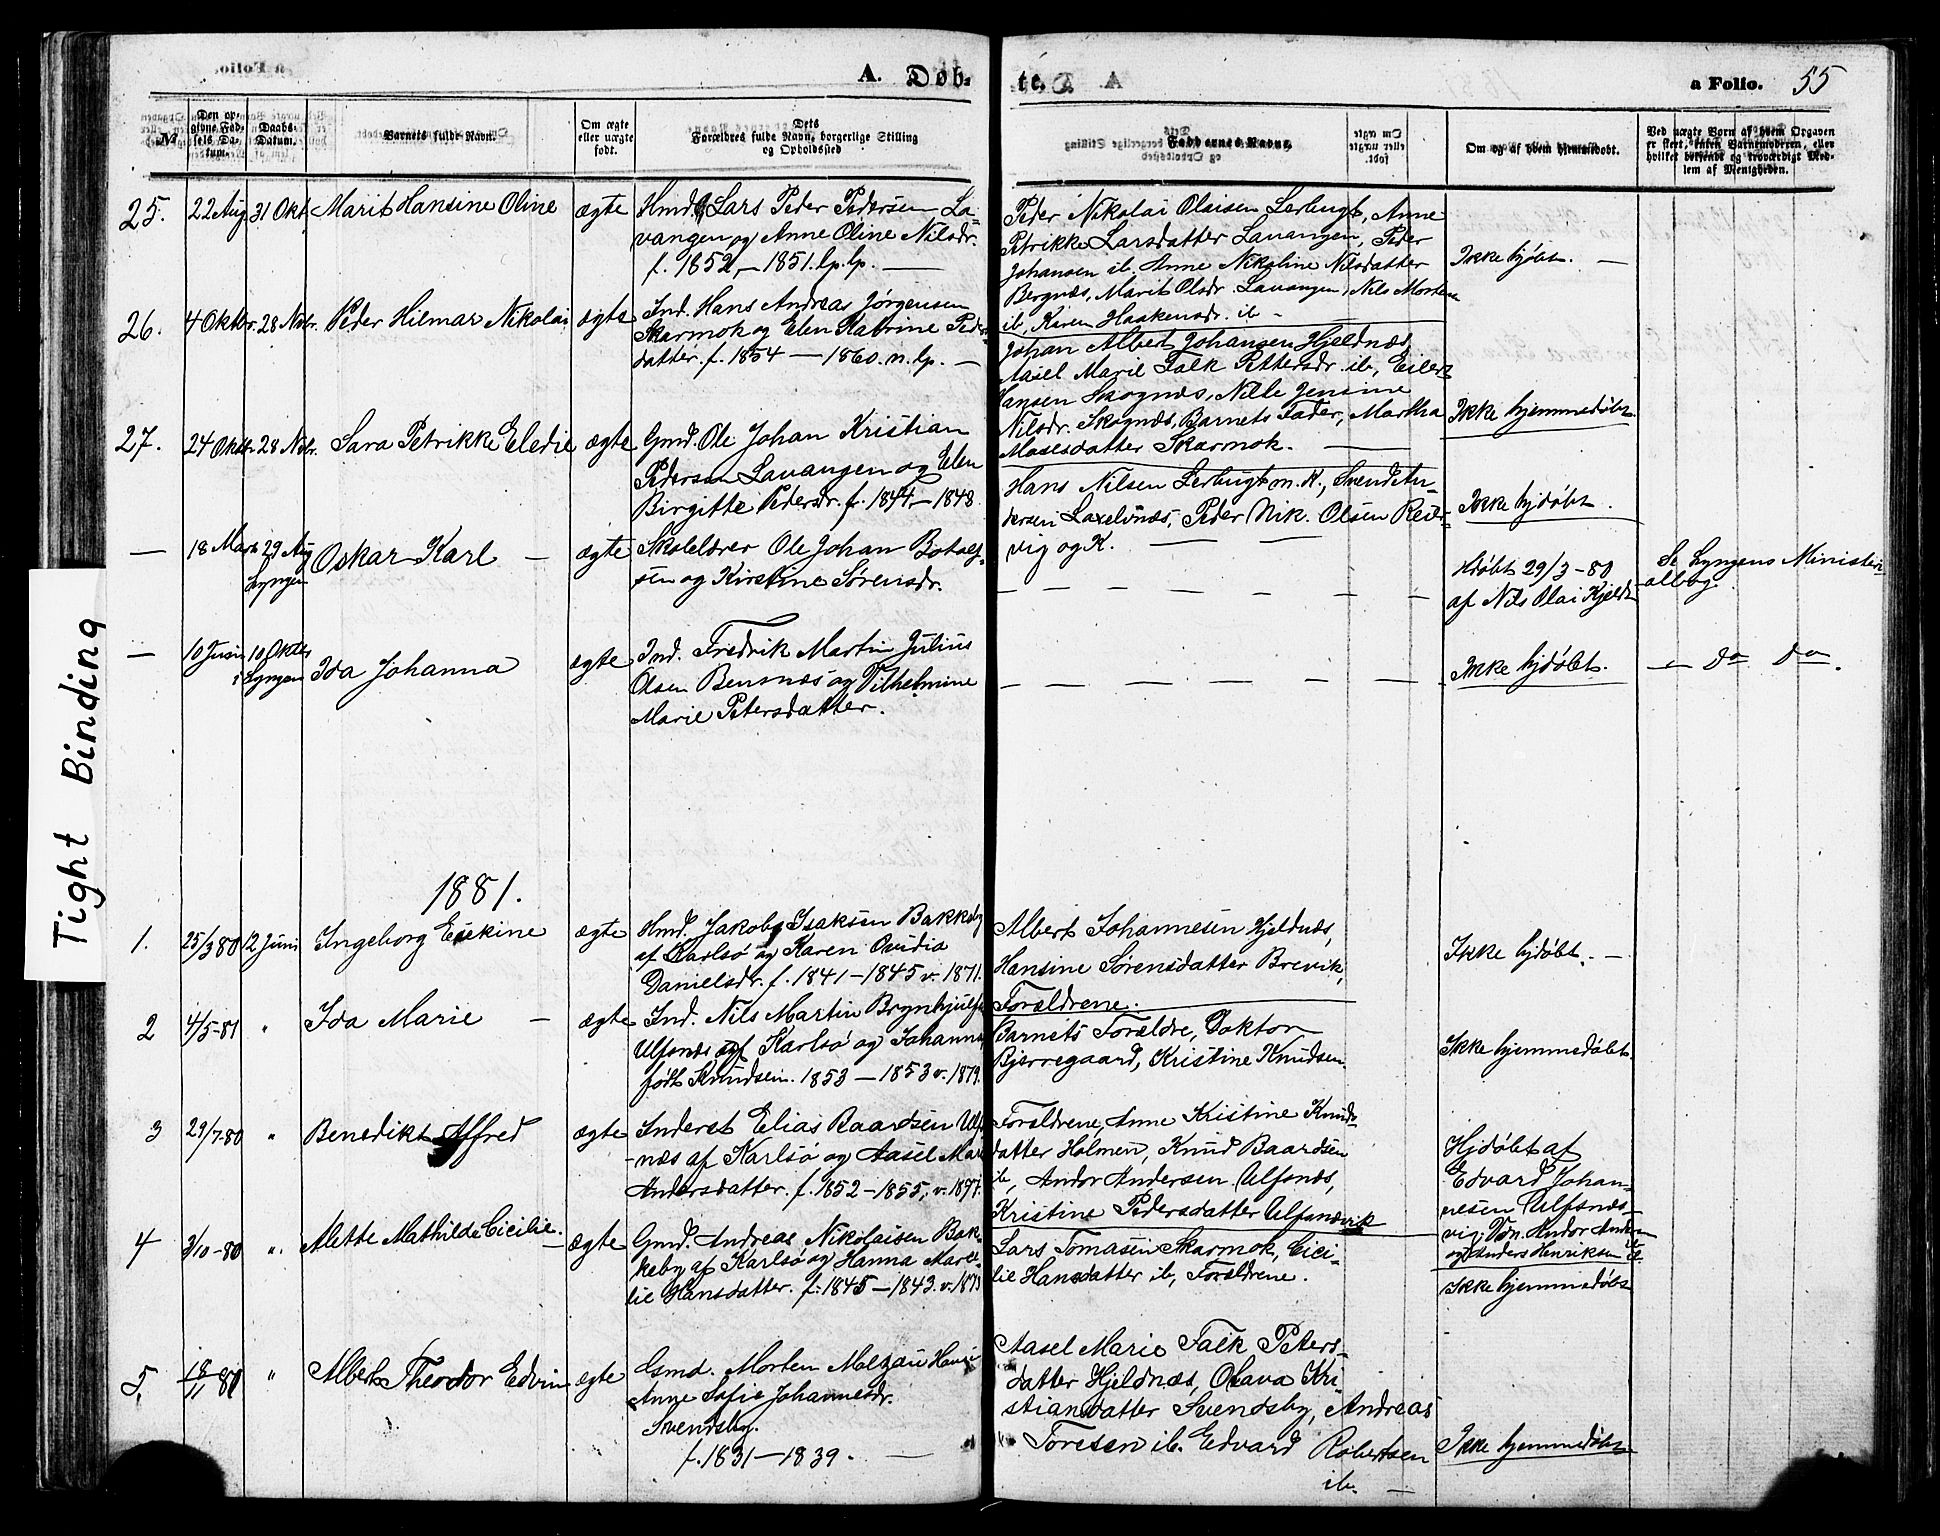 A. Døb-
te.
a Folio. 55
Tight Binding
№
Den op-
givne Fød-
sels Da-
tum.
Daabs-
Datum.
Barnets fulde Navn.
Om ægte
eller uægte
født.
Dets
Forældres fulde Navn, borgerlige Stilling
og Opholdssted
Faddernes Navne.
Om og af hvem hjemmedøbt.
Ved uægte Børn af hvem Opgaven
er skeet, enten Barnemoderen, eller
hvilket bekjendt og troværdigt Med-
lem af Menigheden.
25. 22 Aug 31 Okt. Marit Hansine Oline ægte
Hmd. Lars Peder Pedersen La-
vangen og Anne Oline Nilsdr.
f. 1852 - 1851. lp. lp. —
Peder Nikolai Olaisen Lerbugt, Anne
Petrikke Larsdatter Lavangen, Peder
Johansen ib, Anne Nikoline Nilsdatter
Bergnæs, Marit Olsdr. Lavangen, Nils Morten
ib, Karen Haakensdr. ib -
Ikke hjdøbt. —
26. 4 Oktbr. 28 Nvbr. Peder Hilmar Nikolai ægte
Ind. Hans Andreas Jørgensen
Skarmok og Elen Katrine Peders-
datter. f. 1854 — 1860. n. lp. —
Johan Albert Johansen Hjeldnæs,
Aasel Marie Falk Pettersdr. ib, Eilert
Hansen Skognæs, Nille Jensine
Nilsdr. Skognæs, Barnets Fader, Martha
Mosesdatter Skarmok. —
Ikke hjemmedøbt
27. 24 Oktbr 28 Nvbr. Sara Petrikke Eledie ægte
Gmd. Ole Johan Kristian
Pedersen Lavangen og Elen
Birgitte Pedersdr. f. 1844 - 1848.
Hans Nilsen Lerbugt m. K., Svend An-
dersen Laxelvnæs, Peder Nik. Olsen Reier-
vig og K. — —
Ikke hjdøbt.
— 18 Mars 29 Aug
Lyngen
Oskar Karl — ægte
Skolelærer Ole Johan Botolf-
sen og Kirstine Sørensdr.
— — — — — — —
Hdøbt 29/3 - 80
af Nils Olai Kjeldr
Se Lyngens Ministeri-
albog.
— 10 Juni 10 Oktbr
i Lyngen
Ida Johanna ægte
Ind. Fredrik Martin Julius
Olsen Bensnæs og Vilhelmine
Marie Petersdatter.
— — — — — — —
Ikke hjdøbt.
— Do Do.
1881.
1. 25/3 80 12 Juni Ingeborg Erekine ægte
Hmd. Jakob Isaksen Bakkeby
af Karlsø og Karen Ovidia
Danielsdr. f. 1841 - 1845 v. 1871.
Albert Johannesen Hjeldnæs,
Hansine Sørensdatter Brevik,
Forældrene.
Ikke hjdøbt. —
2 4/5-81 " Ida Marie — ægte
Ind. Nils Martin Brynhjulfs
Ulfsnæs af Karlsø og Johanna
født Knudsen. 1853 — 1853 v. 1879.
Barnets Forældre, Doktor
Bjerregaard, Kristine Knudsen
Ikke hjemmedøbt
3 29/7-80 " Benedikt Alfred ægte
Inderst Elias Baardsen Ulfs-
næs af Karlsø og Aasel Mar
Andersdatter. f. 1852 - 1855, v. 1877.
Forældrene, Anne Kristine Knuds-
datter Holmen, Knud Baardsen
ib, Andor Andersen Ulfsnæs,
Kristine Pedersdatter Ulfsnæsvik
Hjdøbt af
Edvard Johan-
nesen Ulfsnæs-
vig. Vdn. Andor Andersen
og Anders Henriksen ib.
4 3/10-80 " Mette Mathilde Cicilie. — ægte
Gmd. Andreas Nikolaisen Bak-
keby af Karlsø og Hanna Mare-
lie Hansdatter. f. 1845 - 1843. v. 1873
Lars Tomasen Skarmok, Cici-
lie Hansdatter ib, Forældrene.
Ikke hjemmedøbt
5, 18/11 80 " Albert Theodor Edvin ægte
Gmd. Morten Meltzau Hansen
Anne Sofie Johannesdr.
Svendsby.
f. 1831 — 1839. —
Aasel Marie Falk Peters-
datter Hjeldnæs, Olava Kri-
stiansdatter Svendsby, Andreas
Toresen ib. Edvard Robertsen
ib. —
Ikke hjemmedøbt